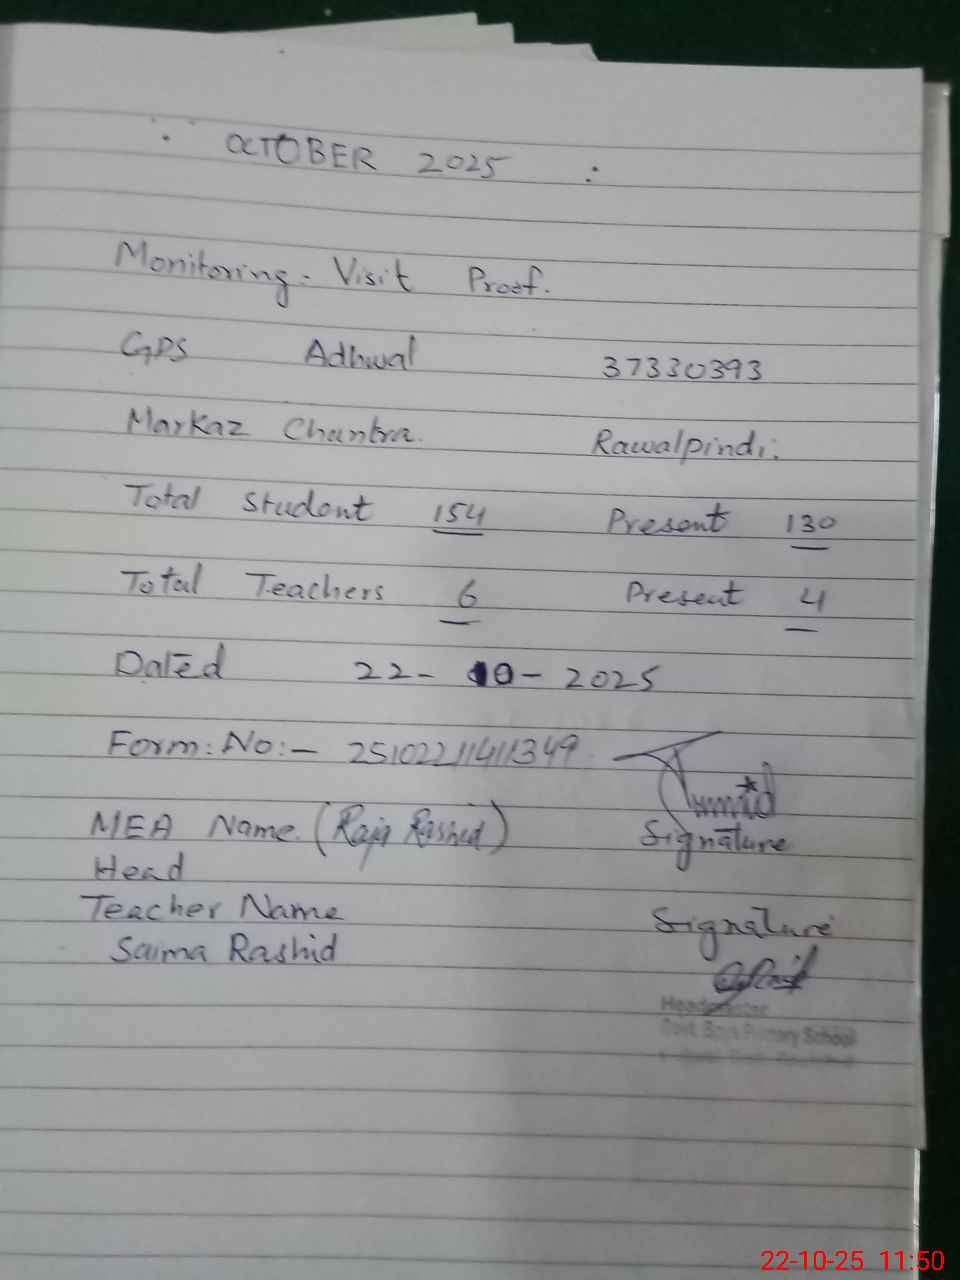 OCTOBER 2025 :
Monitoring - Visit Proof.
GPS Adhwal 37330393
Markaz Chantra. Rawalpindi.
Total Student 154 Present 130
Total Teachers 6 Present 4
Dated 22- 10 - 2025
Form: No:- 2510221141349
MEA Name. (Raja Rashid) Signature
Head
Teacher Name Signature
Saima Rashid
Headmaster
Govt. Boys Primary School
22-10-25 11:50